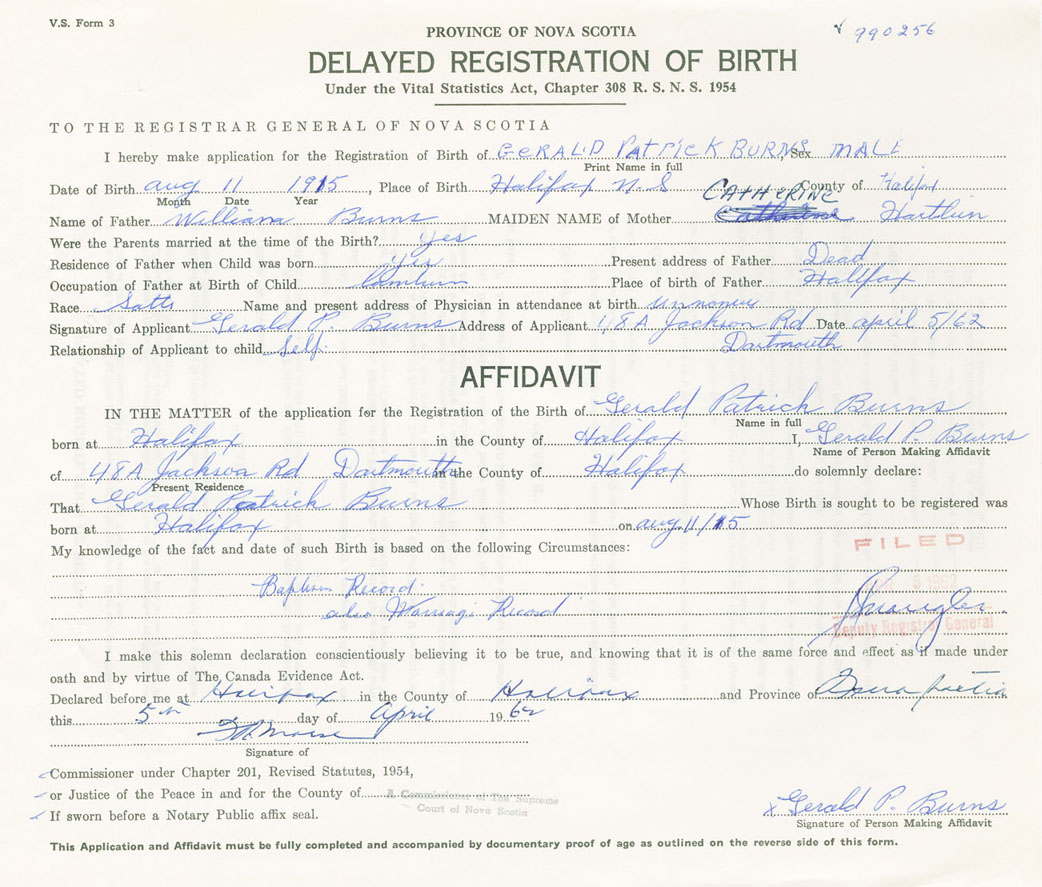 V.S. Form 3
990256
PROVINCE OF NOVA SCOTIA
DELAYED REGISTRATION OF BIRTH
Under the Vital Statistics Act, Chapter 308 R. S. N. S. 1954
TO THE REGISTRAR GENERAL OF NOVA SCOTIA
I hereby make application for the Registration of Birth of GERALD PATRICK BURNS, Sex MALE
Print Name in full
Date of Birth aug 11 1915, Place of Birth Halifax N.S County of Halifax
Month Date Year
Name of Father William Burns MAIDEN NAME of Mother CATHERINE Hartlin
Were the Parents married at the time of the Birth? yes
Residence of Father when Child was born yes Present address of Father Dead
Occupation of Father at Birth of Child Place of birth of Father Halifax
Race Name and present address of Physician in attendance at birth
Signature of Applicant Gerald P. Burns Address of Applicant 48A Jackson Rd Date april 5/62
Dartmouth
Relationship of Applicant to child Self.
AFFIDAVIT
IN THE MATTER of the application for the Registration of the Birth of Gerald Patrick Burns
Name in full
born at Halifax in the County of Halifax I, Gerald P. Burns
Name of Person Making Affidavit
of 48A Jackson Rd Dartmouth in the County of Halifax do solemnly declare:
Present Residence
That Gerald Patrick Burns Whose Birth is sought to be registered was
born at Halifax on aug 11/15
My knowledge of the fact and date of such Birth is based on the following Circumstances:
FILED
Baptism Record
also Marriage Record
Deputy Registrar General
I make this solemn declaration conscientiously believing it to be true, and knowing that it is of the same force and effect as if made under
oath and by virtue of The Canada Evidence Act.
Declared before me at Halifax in the County of Halifax and Province of Nova Scotia
this 5th day of April 1962
Signature of
Commissioner under Chapter 201, Revised Statutes, 1954,
or Justice of the Peace in and for the County of
A Commissioner of The Supreme
Court of Nova Scotia
If sworn before a Notary Public affix seal.
x Gerald P. Burns
Signature of Person Making Affidavit
This Application and Affidavit must be fully completed and accompanied by documentary proof of age as outlined on the reverse side of this form.